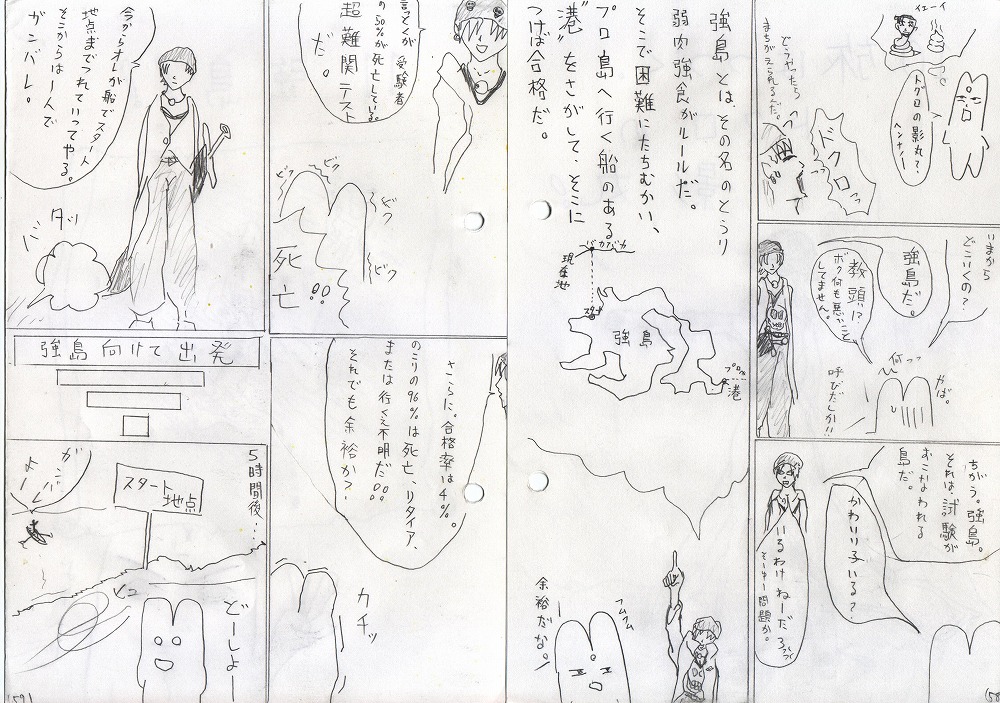 イエーイ
トグロの影丸って、
ヘンナノー
どうやったら
まちがえられるんだ。
ドクロっ
いまから
どこいくの?
強島だ。
教頭!?
ボク何も悪いこと
してません。
何っっ
やば。
呼びだしか!!
ちがう。強島。
それは試験が
おこなわれる
島だ。
かわりり子いる?
いるわけねーだろ
そーゆー問題か。
強島とは、その名のとうり
弱肉強食がルールだ。
そこで困難にたちむかい、
プロ島へ行く船のある
"港"をさがして、そこに
つけば合格だ。
バカバカ
現在地
スタート
強島
プロ島
港
フムフム
余裕だな。
言っとくが
受験者
の50%が死亡している。
超難関テスト
だ。
ビクッ
ビクッ
ビク
ビク
死亡!!
さらに。合格率は4%。
のこりの96%は死亡、リタイア、
または行くえ不明だ!!
それでも余裕か?
カチッ
今からオレが船でスタート
地点までつれていってやる。
そこからは一人で
ガンバレ。
ダッ
強島向けて出発
5時間後…
スタート
地点
がんば
よー
ヒュー
どーしよー
59
58